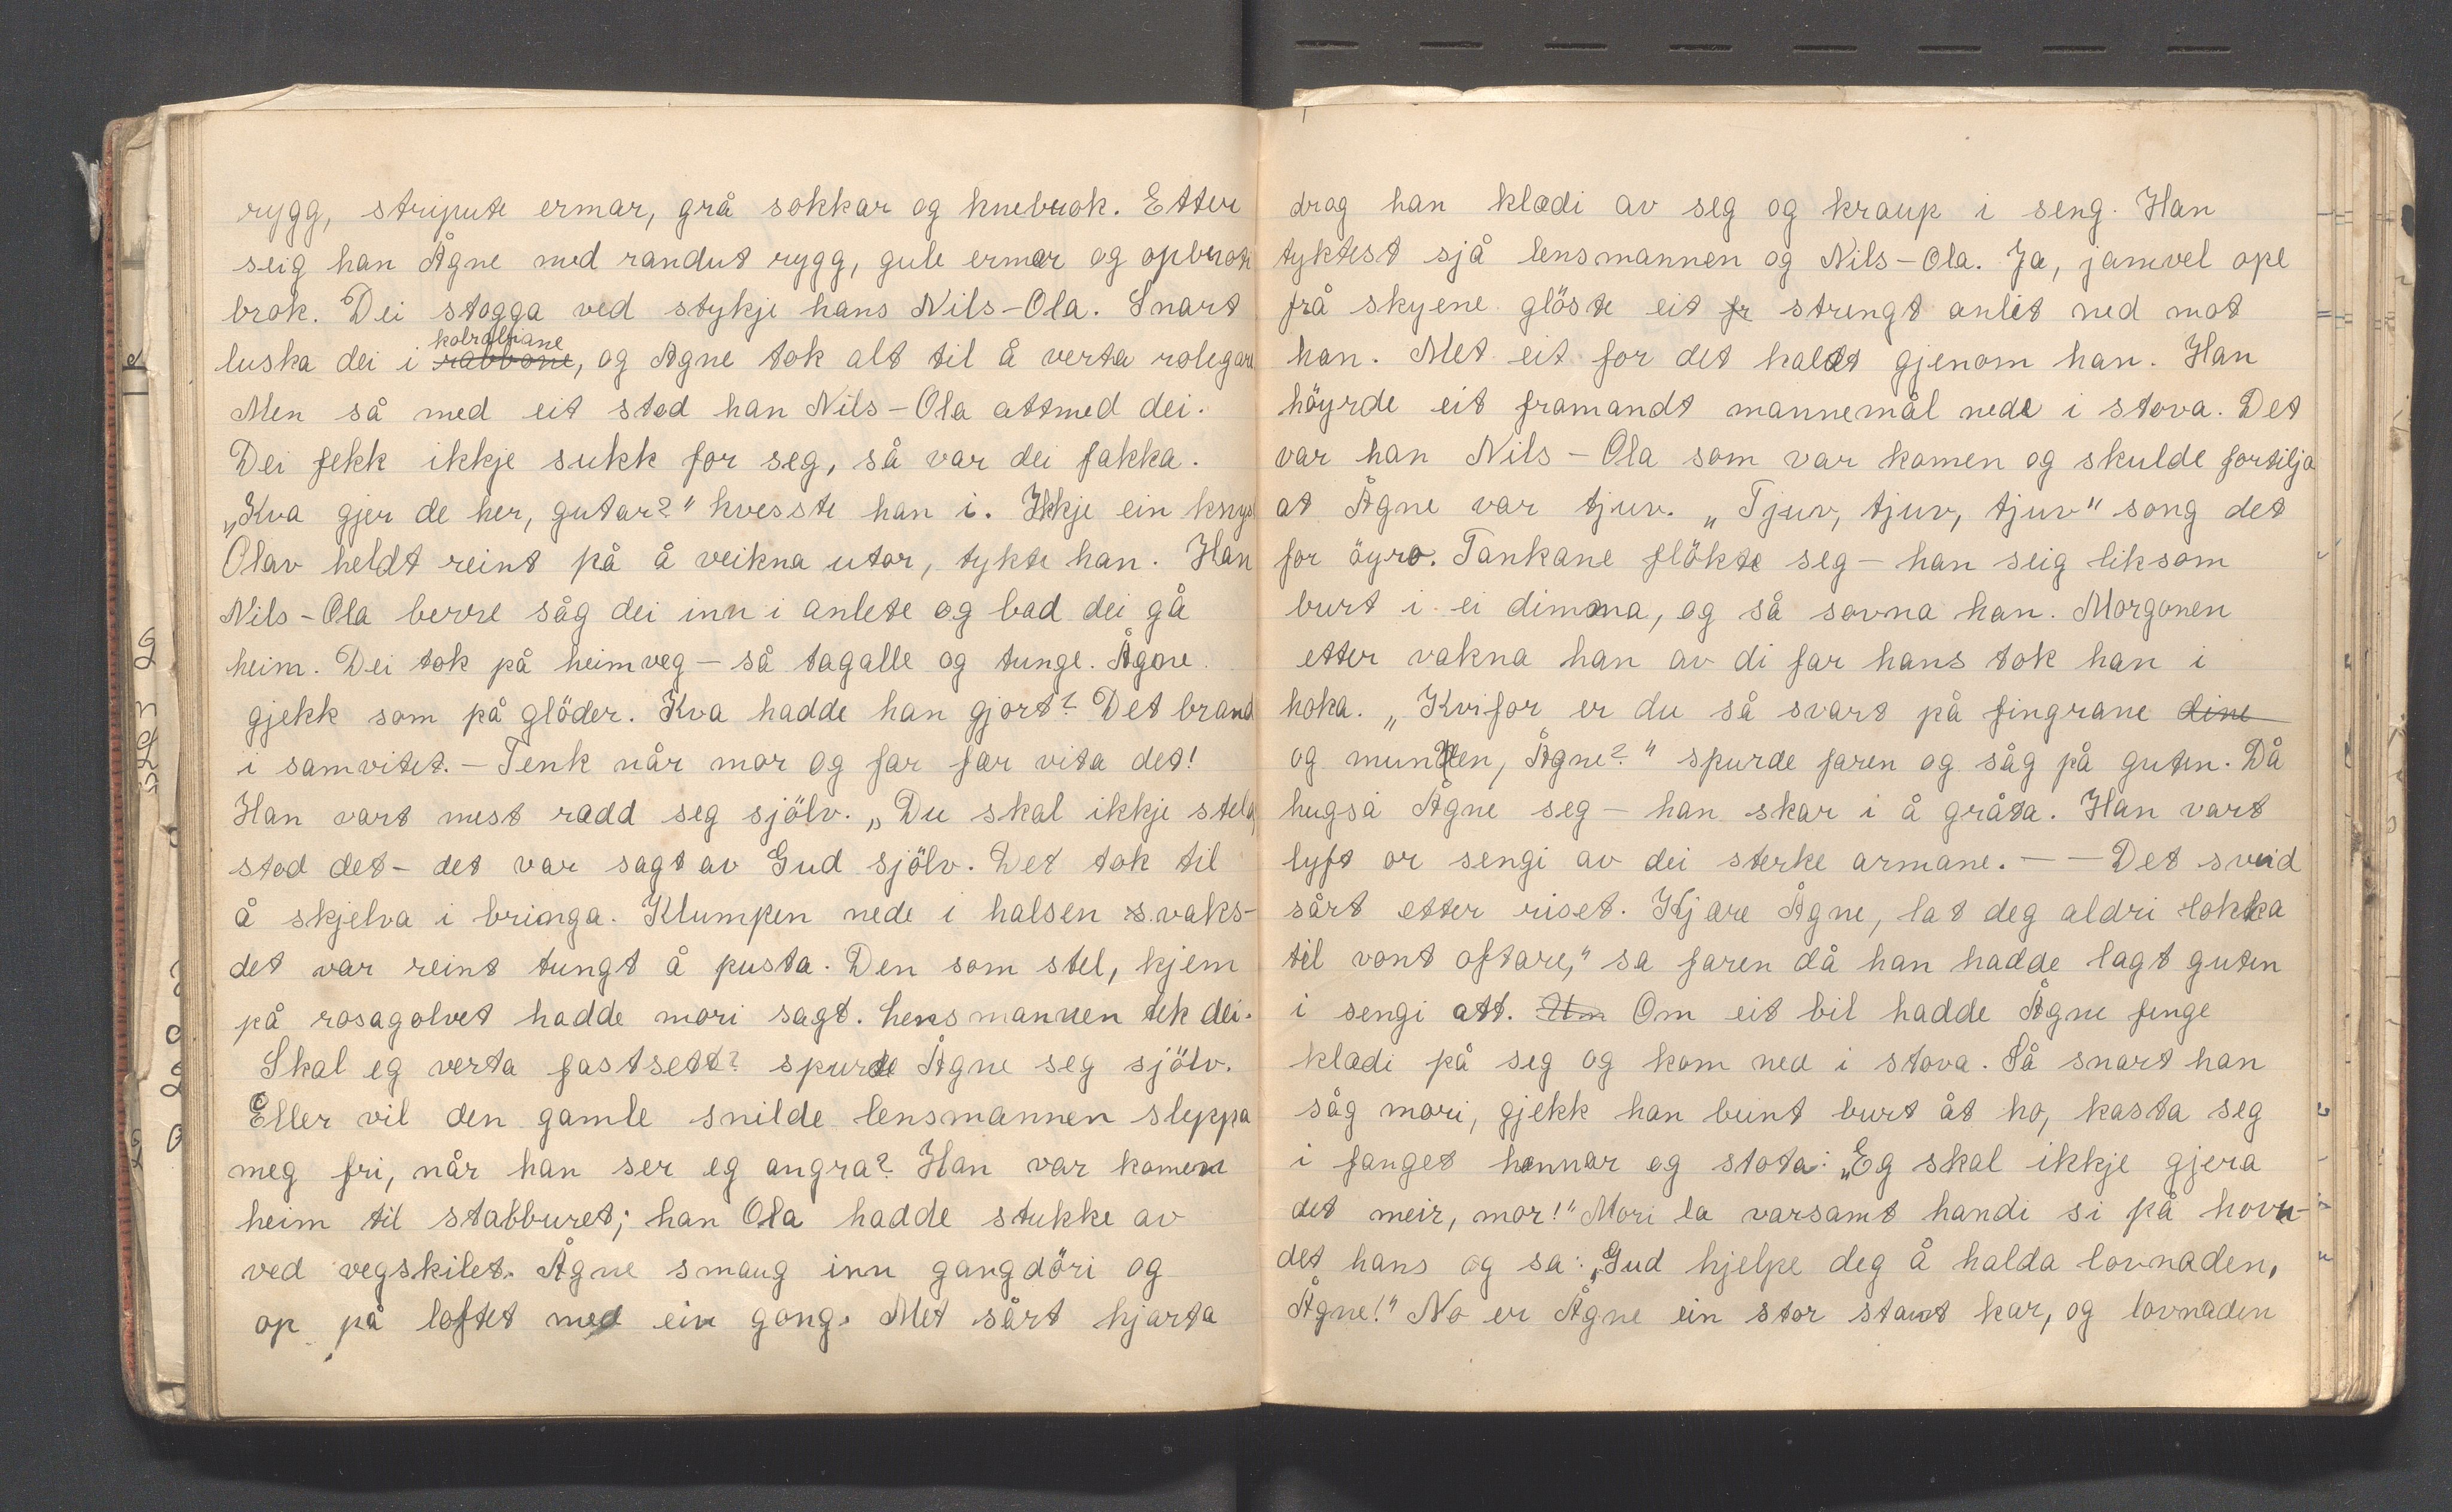 rygg, stripute ermar, grå sokkar og knebrok. Etter
seig han Ågne med randut rygg, gule ermar og opbroti
brok. Dei stogga ved stykje hans Nils-Ola. Snart
kolrabiane
luska dei i rabbane, og Ågne tok alt til å verta rolegare
Men så med eit stod han Nils-Ola attmed dei.
Dei fekk ikkje sukk for seg, så var dei fakka.
„Kva gjer de her, gutar?" kvesste han i. Ikkje ein knyst
Olav heldt reint på å veikna utor, tykte han. Han
Nils-Ola berre såg dei inn i anlete og bad dei gå
heim. Dei tok på heimveg – så tagalle og tunge. Ågne
gjekk som på glöder. Kva hadde han gjort? Det brand
i samvitet. – Tenk når mor og far fær vita det!
Han vart mest rædd seg sjölv. „Du skal ikkje stela
stod det – det var sagt av Gud sjölv. Det tok til
å skjelva i bringa. Klumpen nede i halsen s vaks –
det var reint tungt å pusta. Den som stel, kjem
på rasagolvet hadde mori sagt. Lensmannen tek dei.
Skal eg verta fastsett? spurde Ågne seg sjölv.
Eller vil den gamle snilde lensmannen sleppa
meg fri, når han ser eg angra? Han var komen
heim til stabburet; han Ola hadde stukke av
ved vegskilet. Ågne smaug inn gangdöri og
op på loftet med ein gong. Met sårt hjarta
drog han klædi av seg og kraup i seng. Han
tyktest sjå lensmannen og Nils-Ola. Ja, jamvel ope
frå skyene glöste eit fr strengt anlet ned mot
han. Met eit for det kaldt gjenom han. Han
höyrde eit framandt mannemål nede i stova. Det
var han Nils-Ola som var komen og skulde fortelja
at Ågne var tjuv. „Tjuv, tjuv, tjuv" song det
for öyro. Tankane flökte seg – han seig liksom
burt i ei dimma, og så sovna han. Morgonen
etter vakna han av di far hans tok han i
hoka. „Kvifor er du så svart på fingrane dine
og munnen, Ågne?" spurde faren og såg på guten. Då
hugsa Ågne seg – han skar i å gråta. Han vart
lyft or sengi av dei sterke armane. – – Det sveid
sårt etter riset. Kjære Ågne, lat deg aldri lokka
til vont oftare," sa faren då han hadde lagt guten
i sengi att. Um Om eit bil hadde Ågne fenge
klædi på seg og kom ned i stova. Så snart han
såg mori, gjekk han beint burt åt ho, kasta seg
i fanget hennar og stota: „Eg skal ikkje gjera
det meir, mor!" Mori la varsamt handi si på hovu-
det hans og sa: „Gud hjelpe deg å halda lovnaden,
Ågne!" No er Ågne ein stor staut kar, og lovnaden